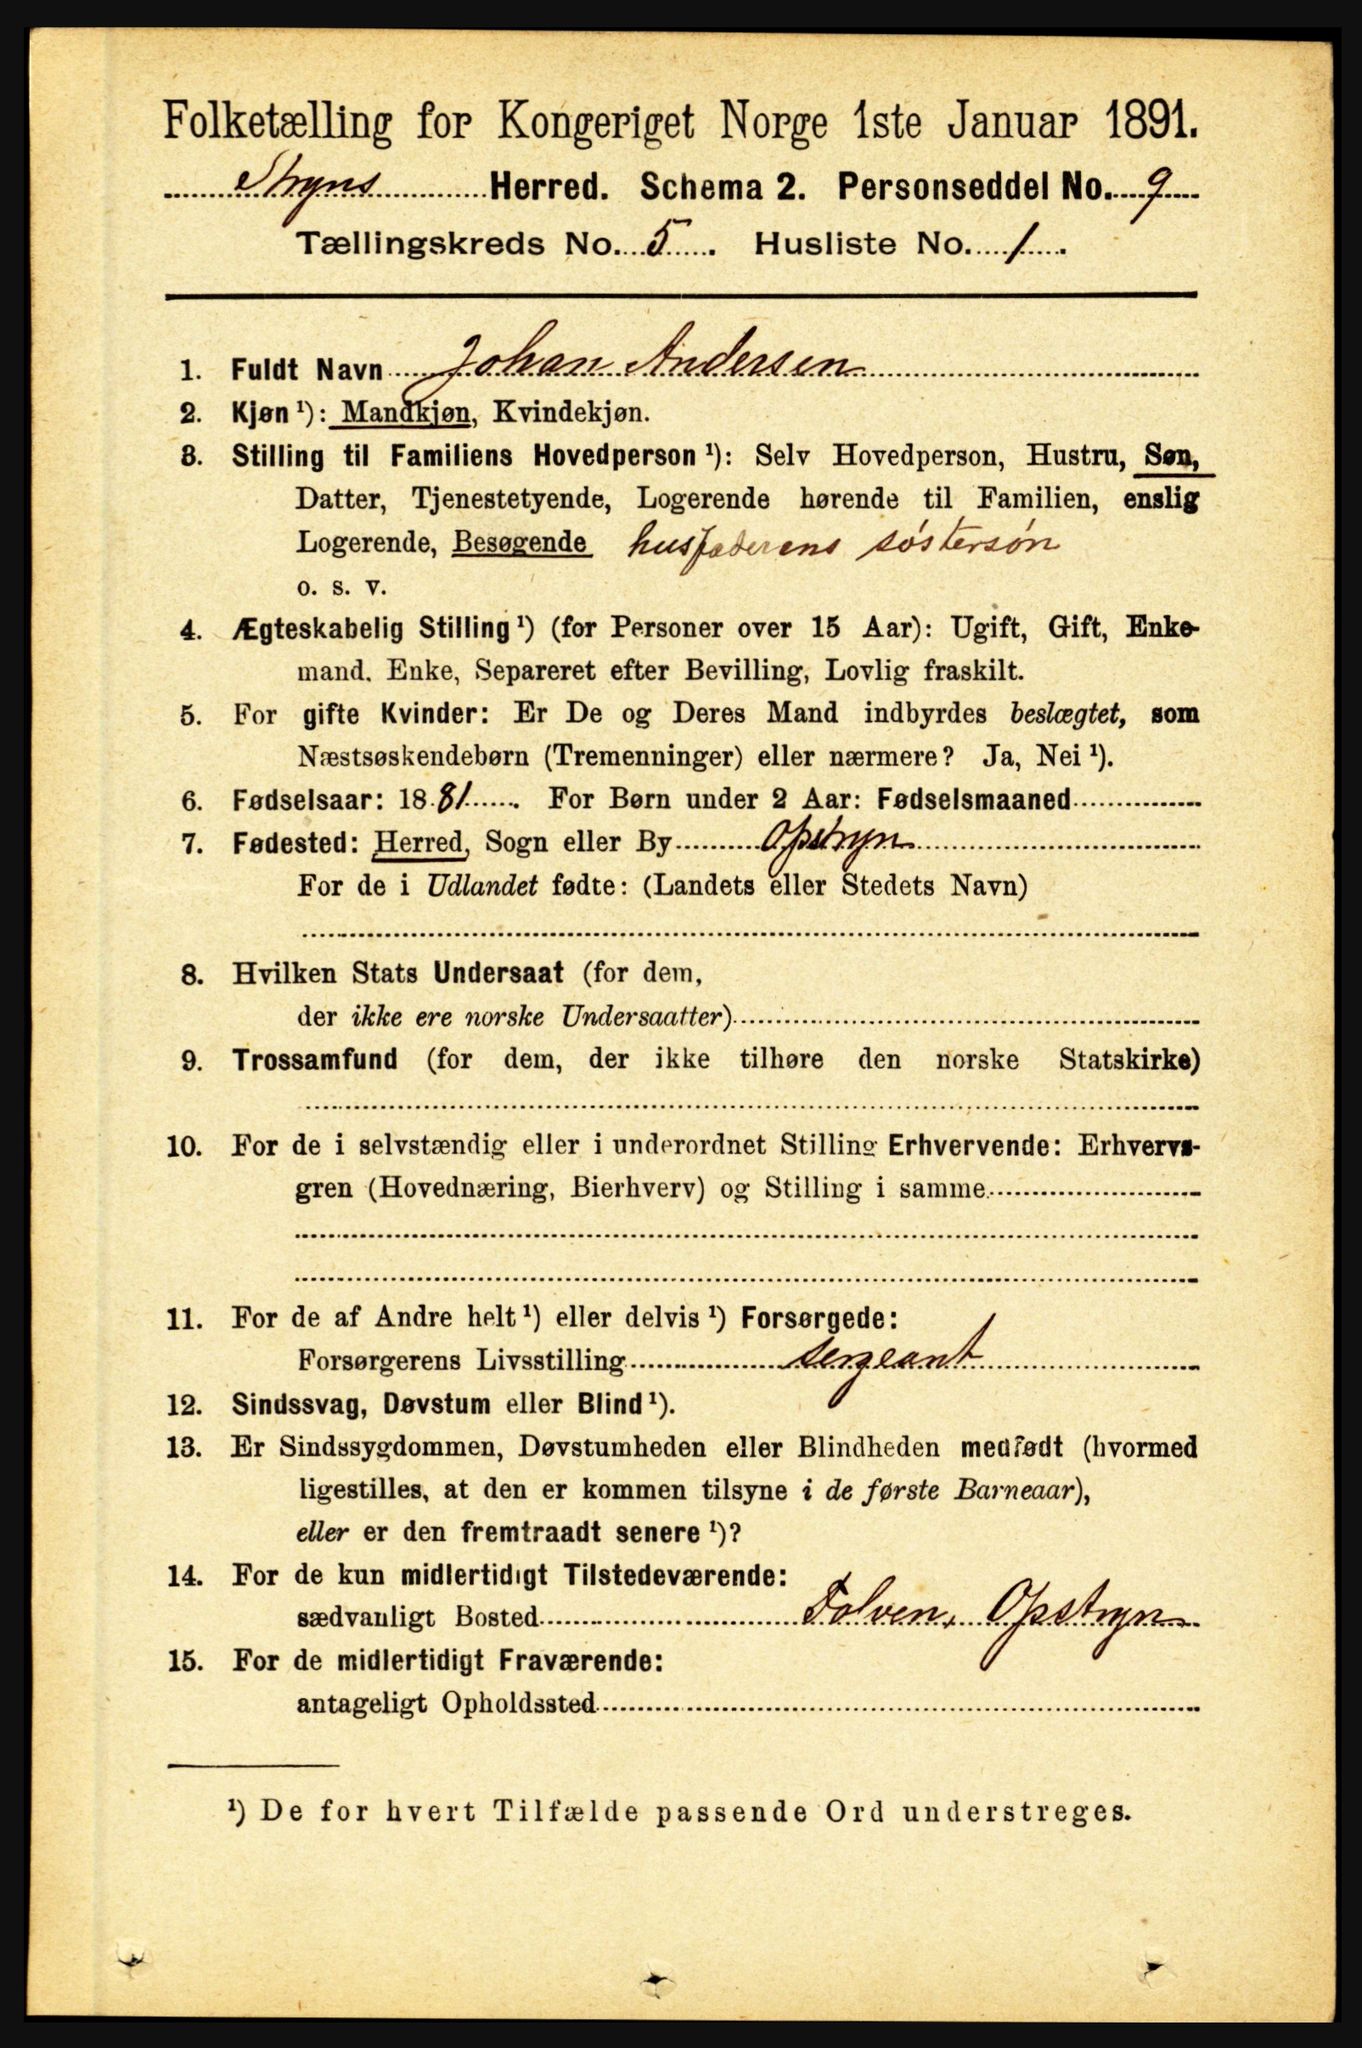 Folketælling for Kongeriget Norge 1ste Januar 1891.
Stryns Herred. Schema 2. Personseddel No. 9
Tællingskreds No. 5. Husliste No. 1.
1. Fuldt Navn Johan Andersen
2. Kjøn ¹): Mandkjøn, Kvindekjøn.
3. Stilling til Familiens Hovedperson ¹): Selv Hovedperson, Hustru, Søn,
Datter, Tjenestetyende, Logerende hørende til Familien, enslig
Logerende, Besøgende husfaderens søstersøn
o. s. v.
4. Ægteskabelig Stilling ¹) (for Personer over 15 Aar): Ugift, Gift, Enke-
mand, Enke, Separeret efter Bevilling, Lovlig fraskilt.
5. For gifte Kvinder: Er De og Deres Mand indbyrdes beslægtet, som
Næstsøskendebørn (Tremenninger) eller nærmere? Ja, Nei ¹).
6. Fødselsaar: 1881. For Børn under 2 Aar: Fødselsmaaned
7. Fødested: Herred, Sogn eller By Opstryn
For de i Udlandet fødte: (Landets eller Stedets Navn)
8. Hvilken Stats Undersaat (for dem,
der ikke ere norske Undersaatter)
9. Trossamfund (for dem, der ikke tilhøre den norske Statskirke)
10. For de i selvstændig eller i underordnet Stilling Erhvervende: Erhvervs-
gren (Hovednæring, Bierhverv) og Stilling i samme
11. For de af Andre helt ¹) eller delvis ¹) Forsørgede:
Forsørgerens Livsstilling sergeant
12. Sindssvag, Døvstum eller Blind ¹).
13. Er Sindssygdommen, Døvstumheden eller Blindheden medfødt (hvormed
ligestilles, at den er kommen tilsyne i de første Barneaar),
eller er den fremtraadt senere ¹)?
14. For de kun midlertidigt Tilstedeværende:
sædvanligt Bosted Folven, Opstryn
15. For de midlertidigt Fraværende:
antageligt Opholdssted
¹) De for hvert Tilfælde passende Ord understreges.